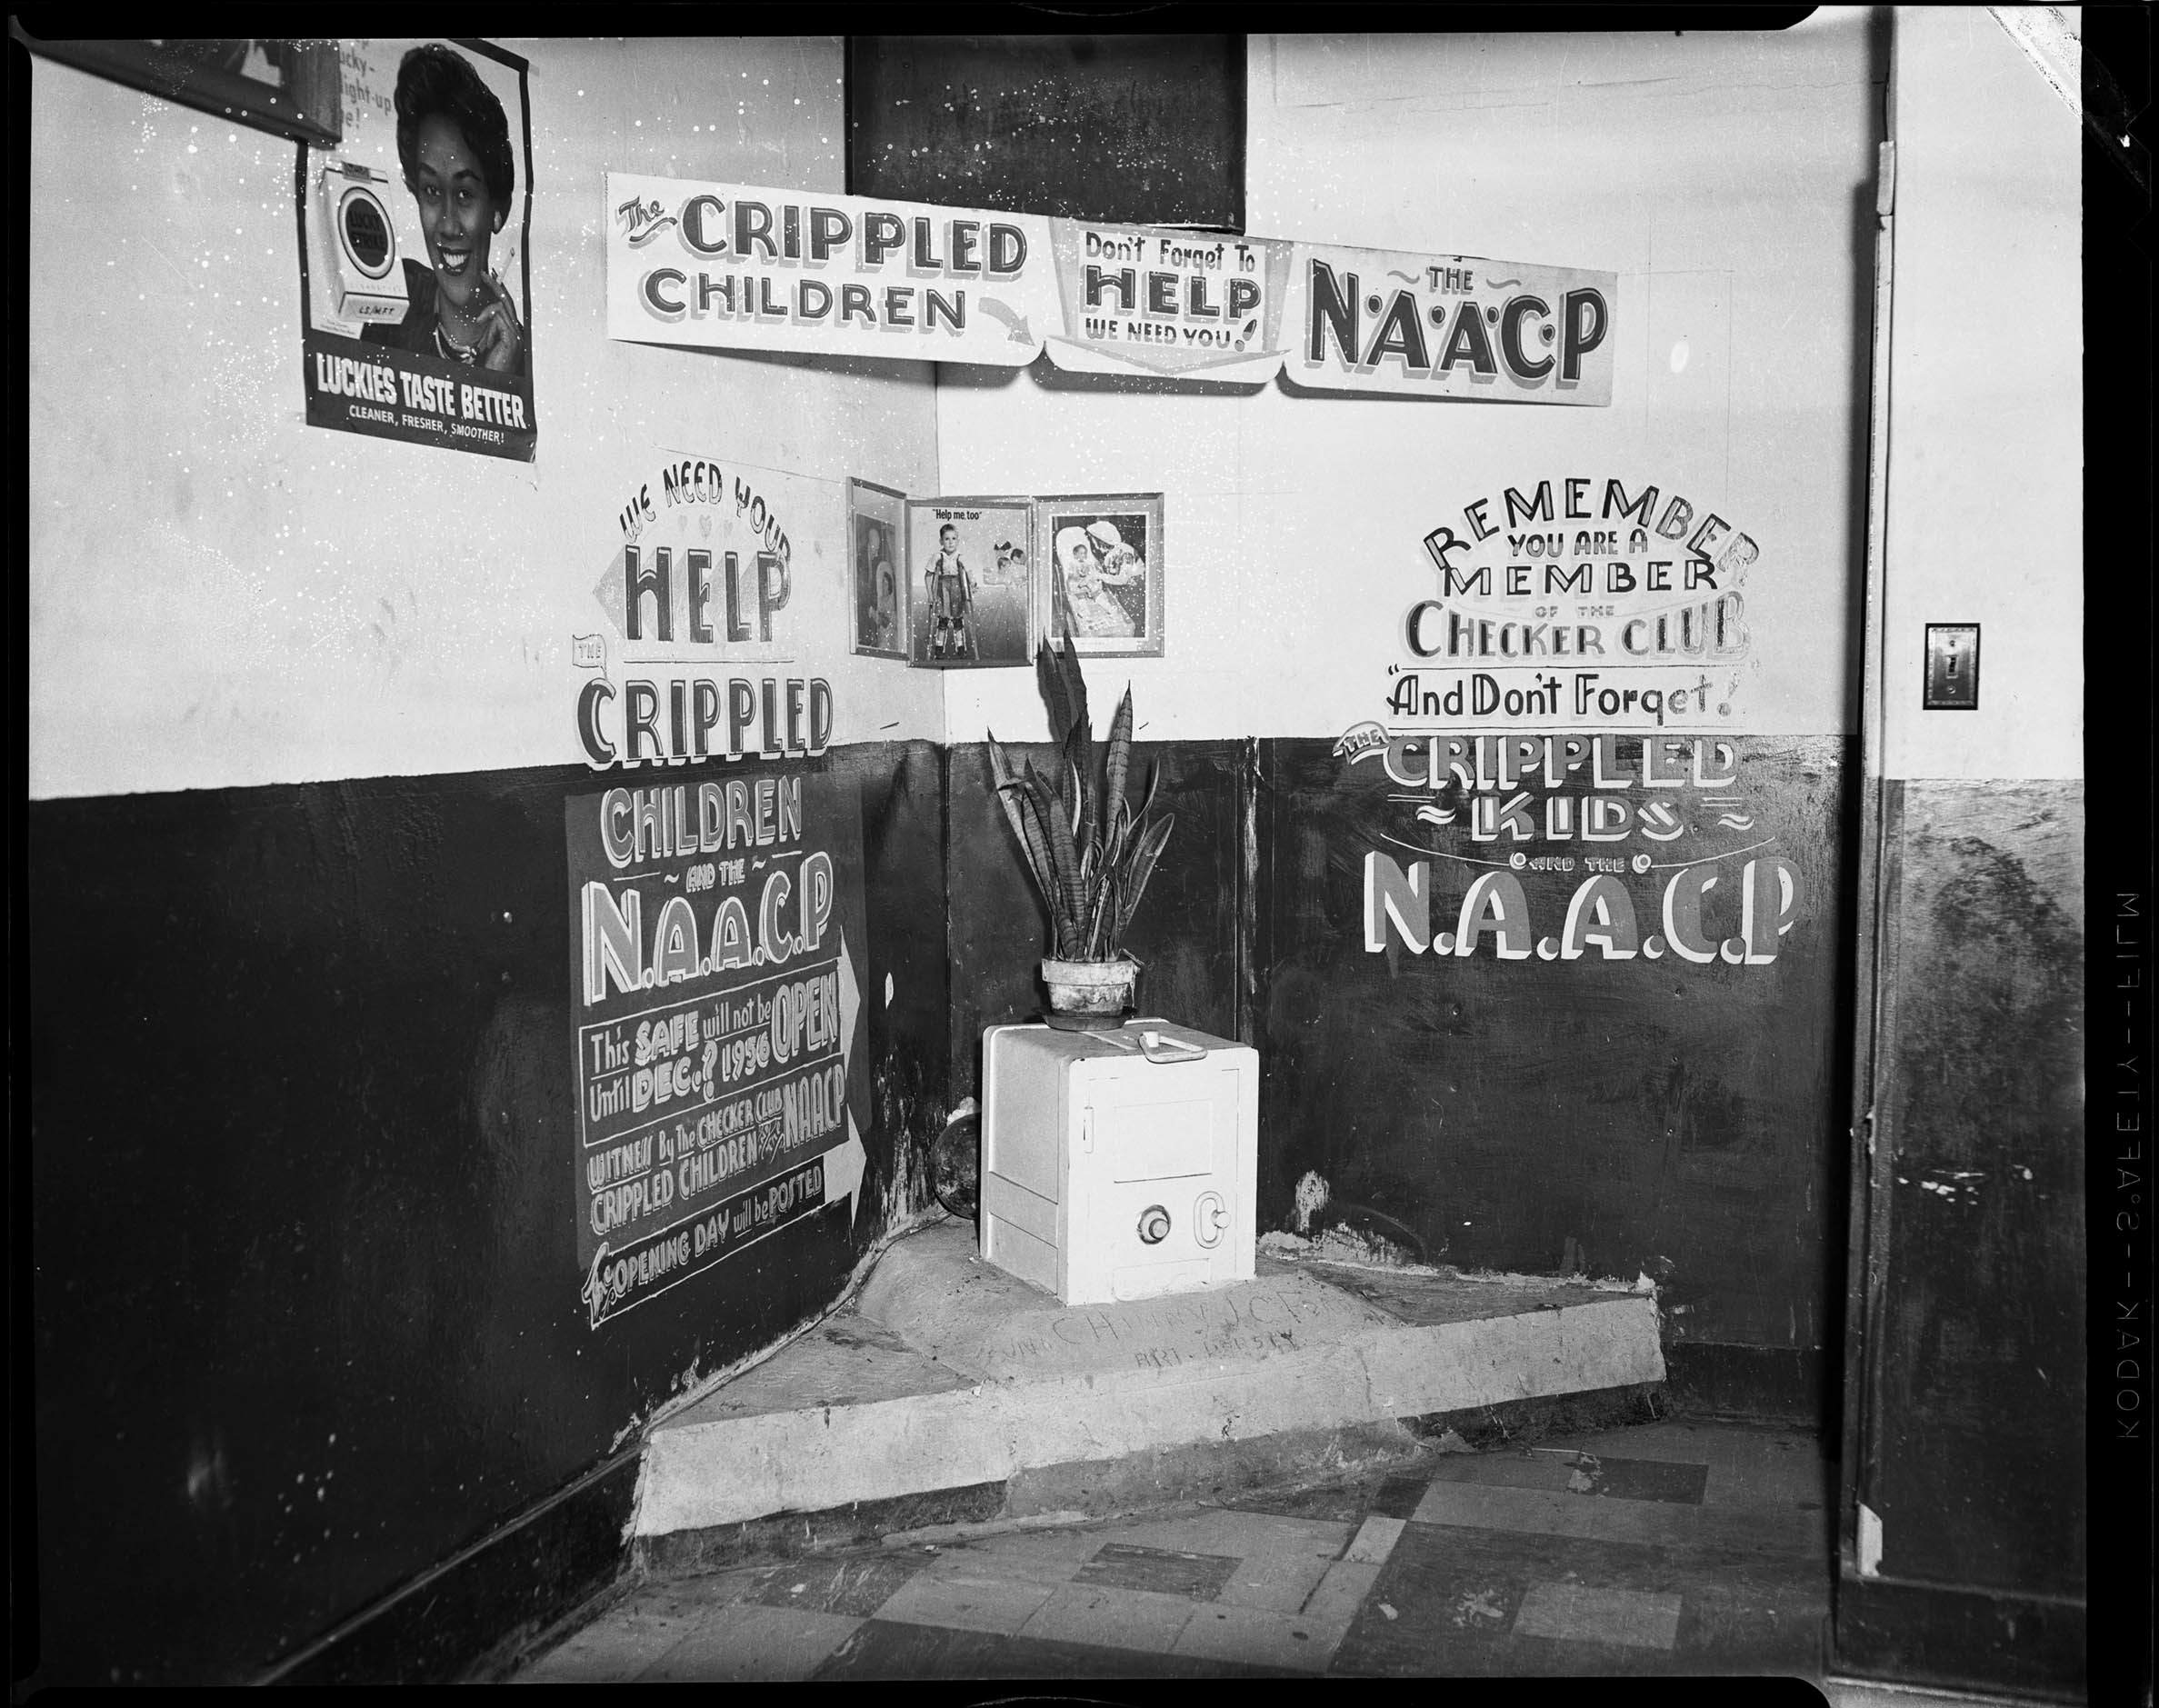 ucky-
light-up
e!
LUCKY
STRIKE
CIGARETTES
L.S./M.F.T.
LUCKIES TASTE BETTER
CLEANER, FRESHER, SMOOTHER!
The CRIPPLED
CHILDREN
Don't Forget To
HELP
WE NEED YOU!
THE
N.A.A.C.P
WE NEED YOUR
HELP
THE
CRIPPLED
CHILDREN
~ AND THE ~
N.A.A.C.P
This SAFE will not be OPEN
Until DEC.? 1956
WITNESS By The CHECKER CLUB
CRIPPLED CHILDREN NAACP
The OPENING DAY will be POSTED
"Help me, too"
REMEMBER
YOU ARE A
MEMBER
OF THE
CHECKER CLUB
"And Don't Forget!"
THE CRIPPLED
~ KIDS ~
AND THE
N.A.A.C.P
ART.
KODAK - SAFETY - FILM